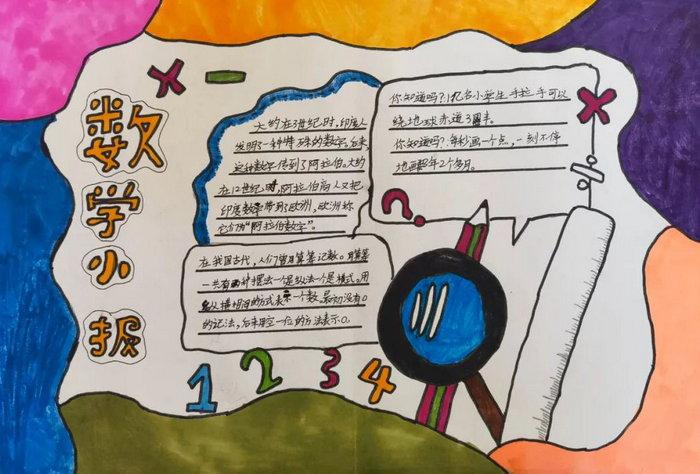 数
学
小
报
大约在3世纪时,印度人
发明了一种特殊的数字。后来
这种数字传到了阿拉伯。大约
在12世纪时,阿拉伯商人又把
印度数字带到了欧洲,欧洲称
它们为"阿拉伯数字"。
你知道吗?1亿名小学生手拉手可以
绕地球赤道3圈半。
你知道吗?每秒画一个点,一刻不停
地画年2个月。
?
在我国古代,人们曾用算筹记数。用算筹
一共有两种摆法一个是纵法一个是横式。用
纵横相间的方式表示一个数,最初没有0
的记法,后来用空一位的方法表示0。
1 2 3 4